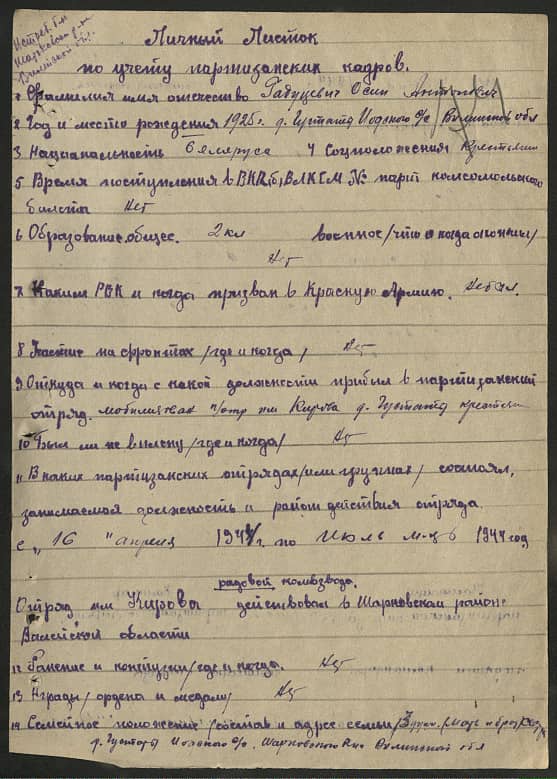 Истреб. б-н
Шарковск. р-на
Вилейской обл.
Личный Листок
по учету партизанских кадров.
1 Фамилия имя отчество Габуцевич Осип Антонович
2 Год и место рождения 1925 г. д. Густаты Иодского с/с Вилейской обл
3 Национальность беларус 4 Соцположения Крестьянин
5 Время поступления в ВКП(б), ВЛКСМ № парт комсомольского
билета Нет
6 Образование общее. 2 кл военное /что и когда окончил/
Нет
7 Каким РВК и когда призван в Красную Армию. Не был.
8 Участие на фронтах /где и когда/ Нет
9 Откуда и когда с какой должности прибыл в партизанский
отряд. мобилизован п/отр им Кирова д. Густаты крестьян
10 Был ли в плену /где и когда/ Нет
11 В каких партизанских отрядах /или группах/ состоял,
занимаемая должность и район действия отряда.
с „16" апреля 1944 г. по Июль м-ц 1944 год
рядовой комвзвода.
Отряд им Кирова действовал в Шарковском районе
Вилейской области
12 Ранение и контузии /где и когда. Нет
13 Награды /ордена и медали/ Нет
14 Семейное положение /состав и адрес семьи /3 душ. (мать и брат)
д. Густаты Иодского с/с. Шарковского р-на Вилейской обл